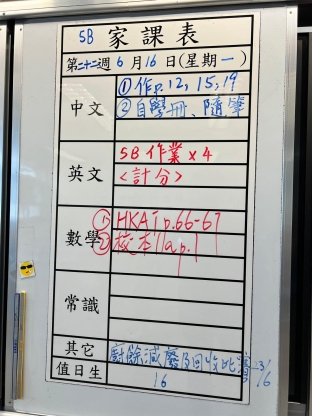 5B 家課表
第二十二週 6月16日(星期一)
中文
①作p.12, 15, 19
②自學冊、隨筆
英文
5B 作業 x 4
<計分>
數學
① HKAT p.66-67
②校本11ap.1
常識
其它
廚餘減廢及回收比賽 23/6
值日生
16